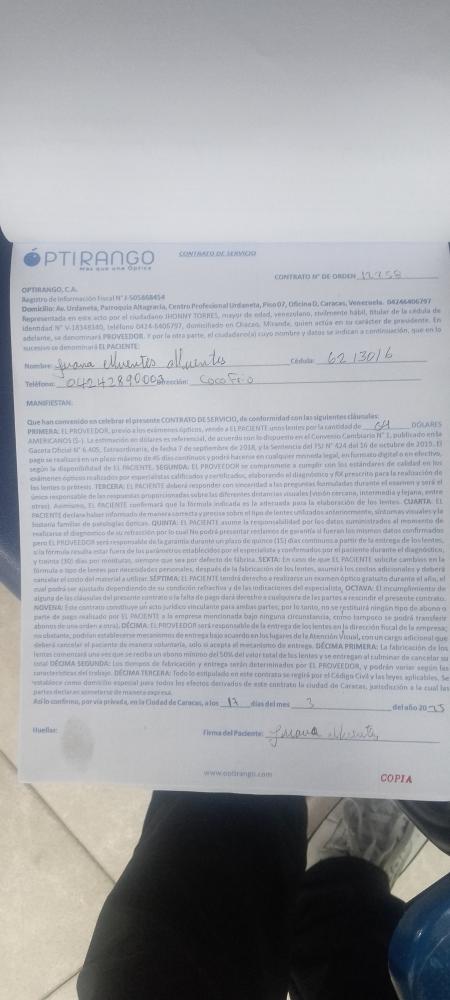 ÓPTIRANGO
Más que una Óptica
CONTRATO DE SERVICIO
CONTRATO N° DE ORDEN 12258
OPTIRANGO, C.A.
Registro de Información Fiscal N° J-505868454
Domicilio: Av. Urdaneta, Parroquia Altagracia, Centro Profesional Urdaneta, Piso 07, Oficina D, Caracas, Venezuela. 04246406797
Representada en este acto por el ciudadano JHONNY TORRES, mayor de edad, venezolano, civilmente hábil, titular de la cédula de
identidad N° V-18348340, teléfono 0424-6406797, domiciliado en Chacao, Miranda, quien actúa en su carácter de presidente. En
adelante, se denominará PROVEEDOR. Y por la otra parte, el ciudadano(a) cuyo nombre y datos se indican a continuación, que en lo
sucesivo se denominará EL PACIENTE:
Nombre: Juana Muentes Muentes Cédula: 6213016
Teléfono: 04242890003 Dirección: Coco Frio
MANIFIESTAN:
Que han convenido en celebrar el presente CONTRATO DE SERVICIO, de conformidad con las siguientes cláusulas:
PRIMERA: EL PROVEEDOR, previo a los exámenes ópticos, vende a EL PACIENTE unos lentes por la cantidad de 64 DÓLARES
AMERICANOS ($-). La estimación en dólares es referencial, de acuerdo con lo dispuesto en el Convenio Cambiario N° 1, publicado en la
Gaceta Oficial N° 6.405, Extraordinaria, de fecha 7 de septiembre de 2018, y la Sentencia del TSJ N° 424 del 16 de octubre de 2019. El
pago se realizará en un plazo máximo de 45 días continuos y podrá hacerse en cualquier moneda legal, en formato digital o en efectivo,
según la disponibilidad de EL PACIENTE. SEGUNDA: EL PROVEEDOR se compromete a cumplir con los estándares de calidad en los
exámenes ópticos realizados por especialistas calificados y certificados, elaborando el diagnóstico y RX prescrito para la realización de
los lentes o prótesis. TERCERA: EL PACIENTE deberá responder con sinceridad a las preguntas formuladas durante el examen y será el
único responsable de las respuestas proporcionadas sobre las diferentes distancias visuales (visión cercana, intermedia y lejana, entre
otras). Asimismo, EL PACIENTE confirmará que la fórmula indicada es la adecuada para la elaboración de los lentes. CUARTA: EL
PACIENTE declara haber informado de manera correcta y precisa sobre el tipo de lentes utilizados anteriormente, síntomas visuales y la
historia familiar de patologías ópticas. QUINTA: EL PACIENTE asume la responsabilidad por los datos suministrados al momento de
realizarse el diagnóstico de su refracción por lo cual No podrá presentar reclamos de garantía si fueran los mismos datos confirmados
pero EL PROVEEDOR será responsable de la garantía durante un plazo de quince (15) días continuos a partir de la entrega de los lentes,
si la fórmula resulta estar fuera de los parámetros establecidos por el especialista y confirmados por el paciente durante el diagnóstico,
y treinta (30) días por monturas, siempre que sea por defecto de fábrica. SEXTA: En caso de que EL PACIENTE solicite cambios en la
fórmula o tipo de lentes por necesidades personales, después de la fabricación de los lentes, asumirá los costos adicionales y deberá
cancelar el costo del material a utilizar. SÉPTIMA: EL PACIENTE tendrá derecho a realizarse un examen óptico gratuito durante el año, el
cual podrá ser ajustado dependiendo de su condición refractiva y de las indicaciones del especialista. OCTAVA: El incumplimiento de
alguna de las cláusulas del presente contrato o la falta de pago dará derecho a cualquiera de las partes a rescindir el presente contrato.
NOVENA: Este contrato constituye un acto jurídico vinculante para ambas partes; por lo tanto, no se restituirá ningún tipo de abono o
parte de pago realizado por EL PACIENTE a la empresa mencionada bajo ninguna circunstancia, como tampoco se podrá transferir
abonos de una orden a otra). DÉCIMA: EL PROVEEDOR será responsable de la entrega de los lentes en la dirección fiscal de la empresa;
no obstante, podrían establecerse mecanismos de entrega bajo acuerdo en los lugares de la Atención Visual, con un cargo adicional que
deberá cancelar el paciente de manera voluntaria, solo si acepta el mecanismo de entrega. DÉCIMA PRIMERA: La fabricación de los
lentes comenzará una vez que se reciba un abono mínimo del 50% del valor total de los lentes y se entregan al culminar de cancelar su
total DÉCIMA SEGUNDA: Los tiempos de fabricación y entrega serán determinados por EL PROVEEDOR, y podrán variar según las
características del trabajo. DÉCIMA TERCERA: Todo lo estipulado en este contrato se regirá por el Código Civil y las leyes aplicables. Se
establece como domicilio especial para todos los efectos derivados de este contrato la ciudad de Caracas, jurisdicción a la cual las
partes declaran someterse de manera expresa.
Así lo confirmo, por vía privada, en la Ciudad de Caracas, a los 17 días del mes 3 del año 2025
Huellas:
Firma del Paciente: Juana Muentes
www.optirango.com
COPIA